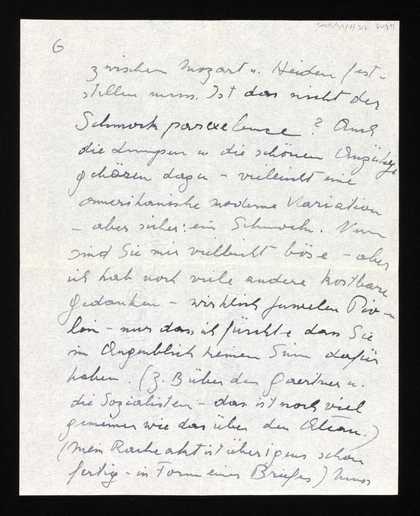 6
zwischen Mozart u. Heiden fest-
stellen muss. Ist das nicht der
Schmock par exelence? Auch
die Lumpen u die schönen Anzüge
gehören dazu - vielleicht eine
amerikanische moderne Variation
- aber sicher: ein Schmock. Nun
sind Sie mir vielleicht böse - aber
ich hab noch viele andere kostbare
Gedanken - wirklich Juwelen
- nur dass ich fürchte dass Sie
im Augenblick keinen Sinn dafür
haben. (z. B über den Gaertner u.
die Sozialisten - das ist noch viel
gemeiner wie das über den)
(Mein Racheakt ist übrigens schon
fertig - in Form eines Briefes)